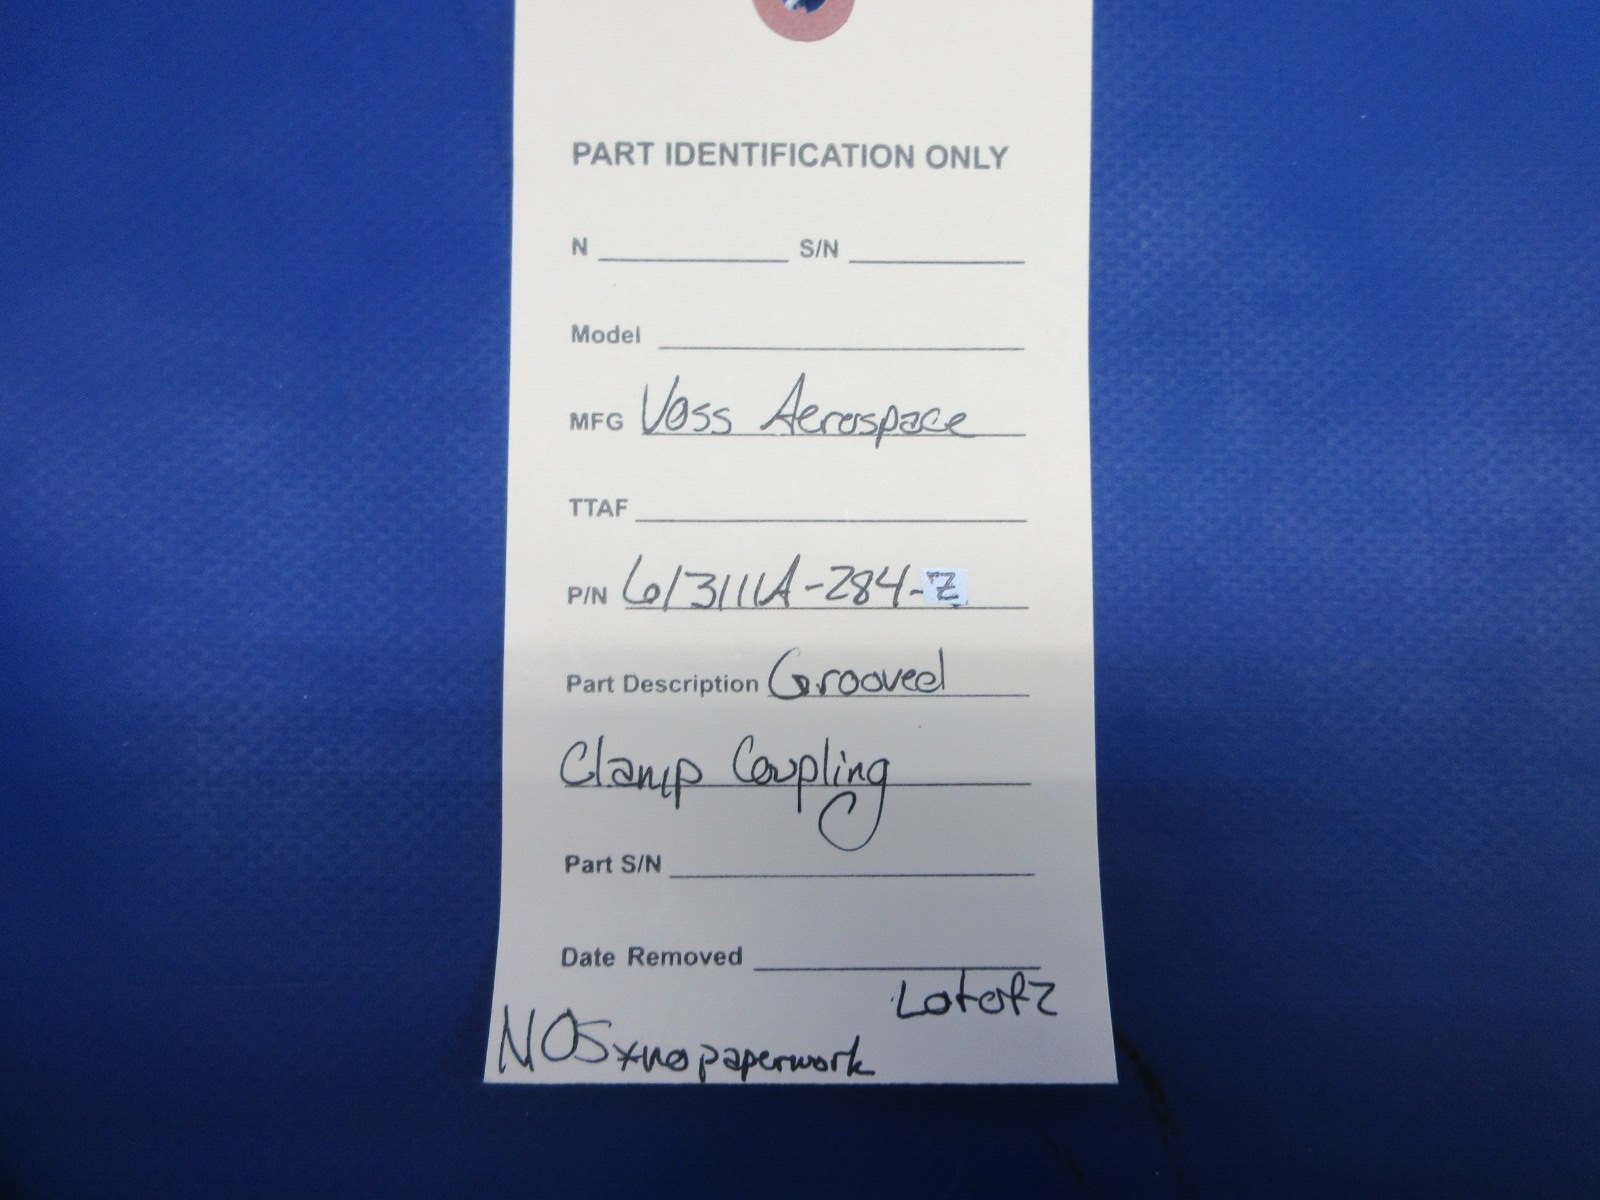 PART IDENTIFICATION ONLY
N S/N
Model
MFG Voss Aerospace
TTAF
P/N 613111A-284-Z
Part Description Grooved
Clamp Coupling
Part S/N
Date Removed
Lot of 2
NOS *no paperwork